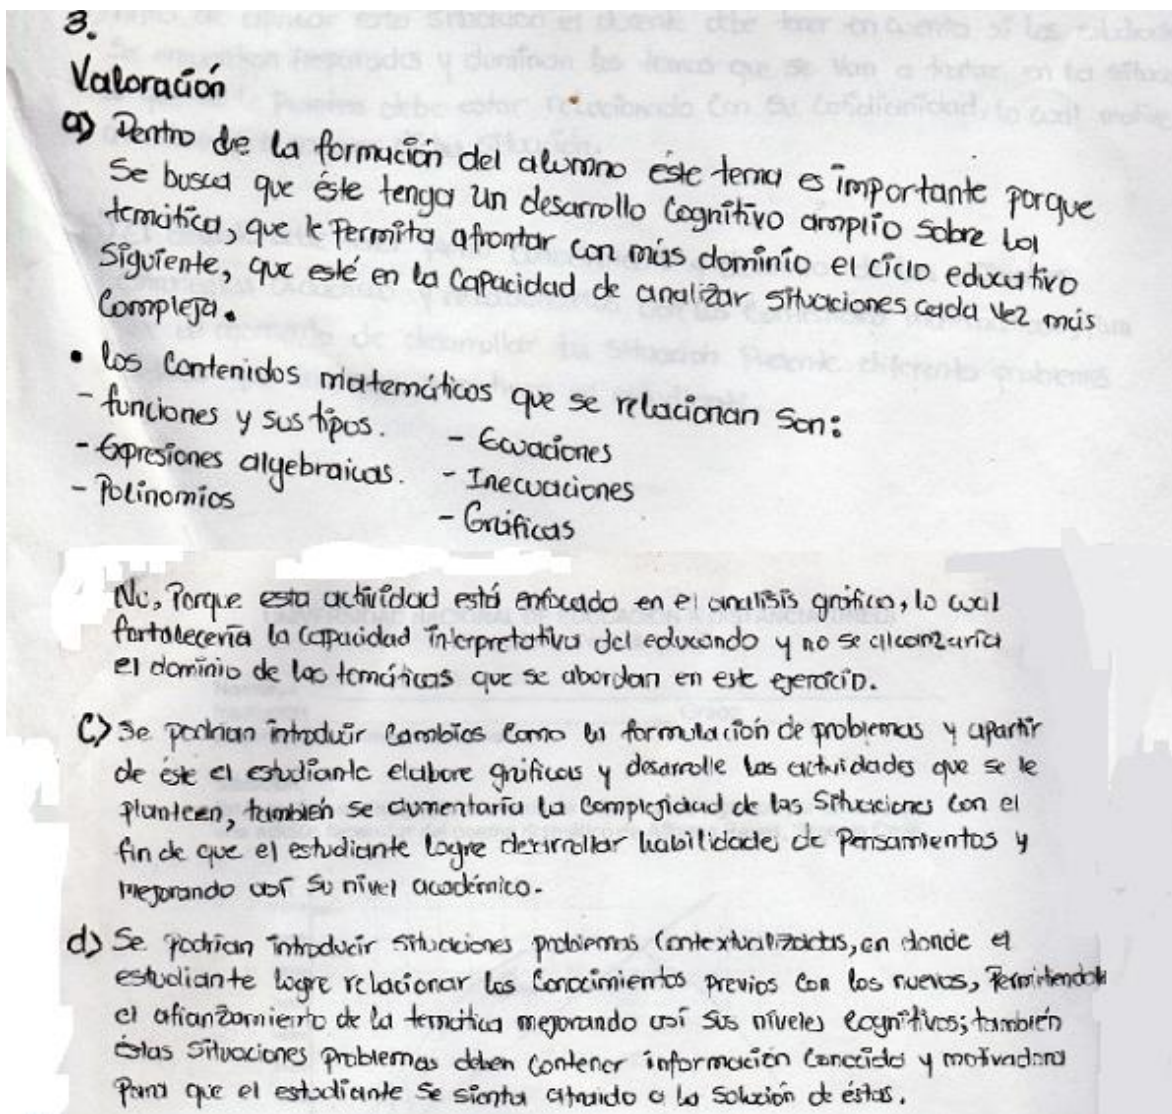 3.
Valoración
a) Dentro de la formación del alumno éste tema es importante porque
Se busca que éste tenga un desarrollo Cognitivo amplio sobre la
temática, que le Permita afrontar con más dominio el ciclo educativo
Siguiente, que esté en la Capacidad de analizar situaciones cada vez más
Compleja.
• los Contenidos matemáticos que se relacionan Son:
- funciones y sus tipos.
- Expresiones algebraicas.
- Polinomios
- Ecuaciones
- Inecuaciones
- Gráficas
No, Porque esta actividad está enfocada en el analisis gráfico, lo cual
fortalecería la capacidad interpretativa del educando y no se alcanzaría
el dominio de las temáticas que se abordan en este ejercicio.
C) Se podrían introducir Cambios Como la formulación de problemas y apartir
de éste el estudiante elabore gráficas y desarrolle las actividades que se le
planteen, también se aumentaría la Complejidad de las Situaciones con el
fin de que el estudiante logre desarrollar habilidades de Pensamientos y
mejorando así Su nivel académico.
d) Se podrían introducir situaciones problemas Contextualizadas, en donde el
estudiante logre relacionar los Conocimientos previos con los nuevos, Permitiendole
el afianzamiento de la temática mejorando así sus niveles cognitivos; también
éstas Situaciones problemas deben Contener información Conocida y motivadora
Para que el estudiante Se sienta atraido a la Solución de éstas.